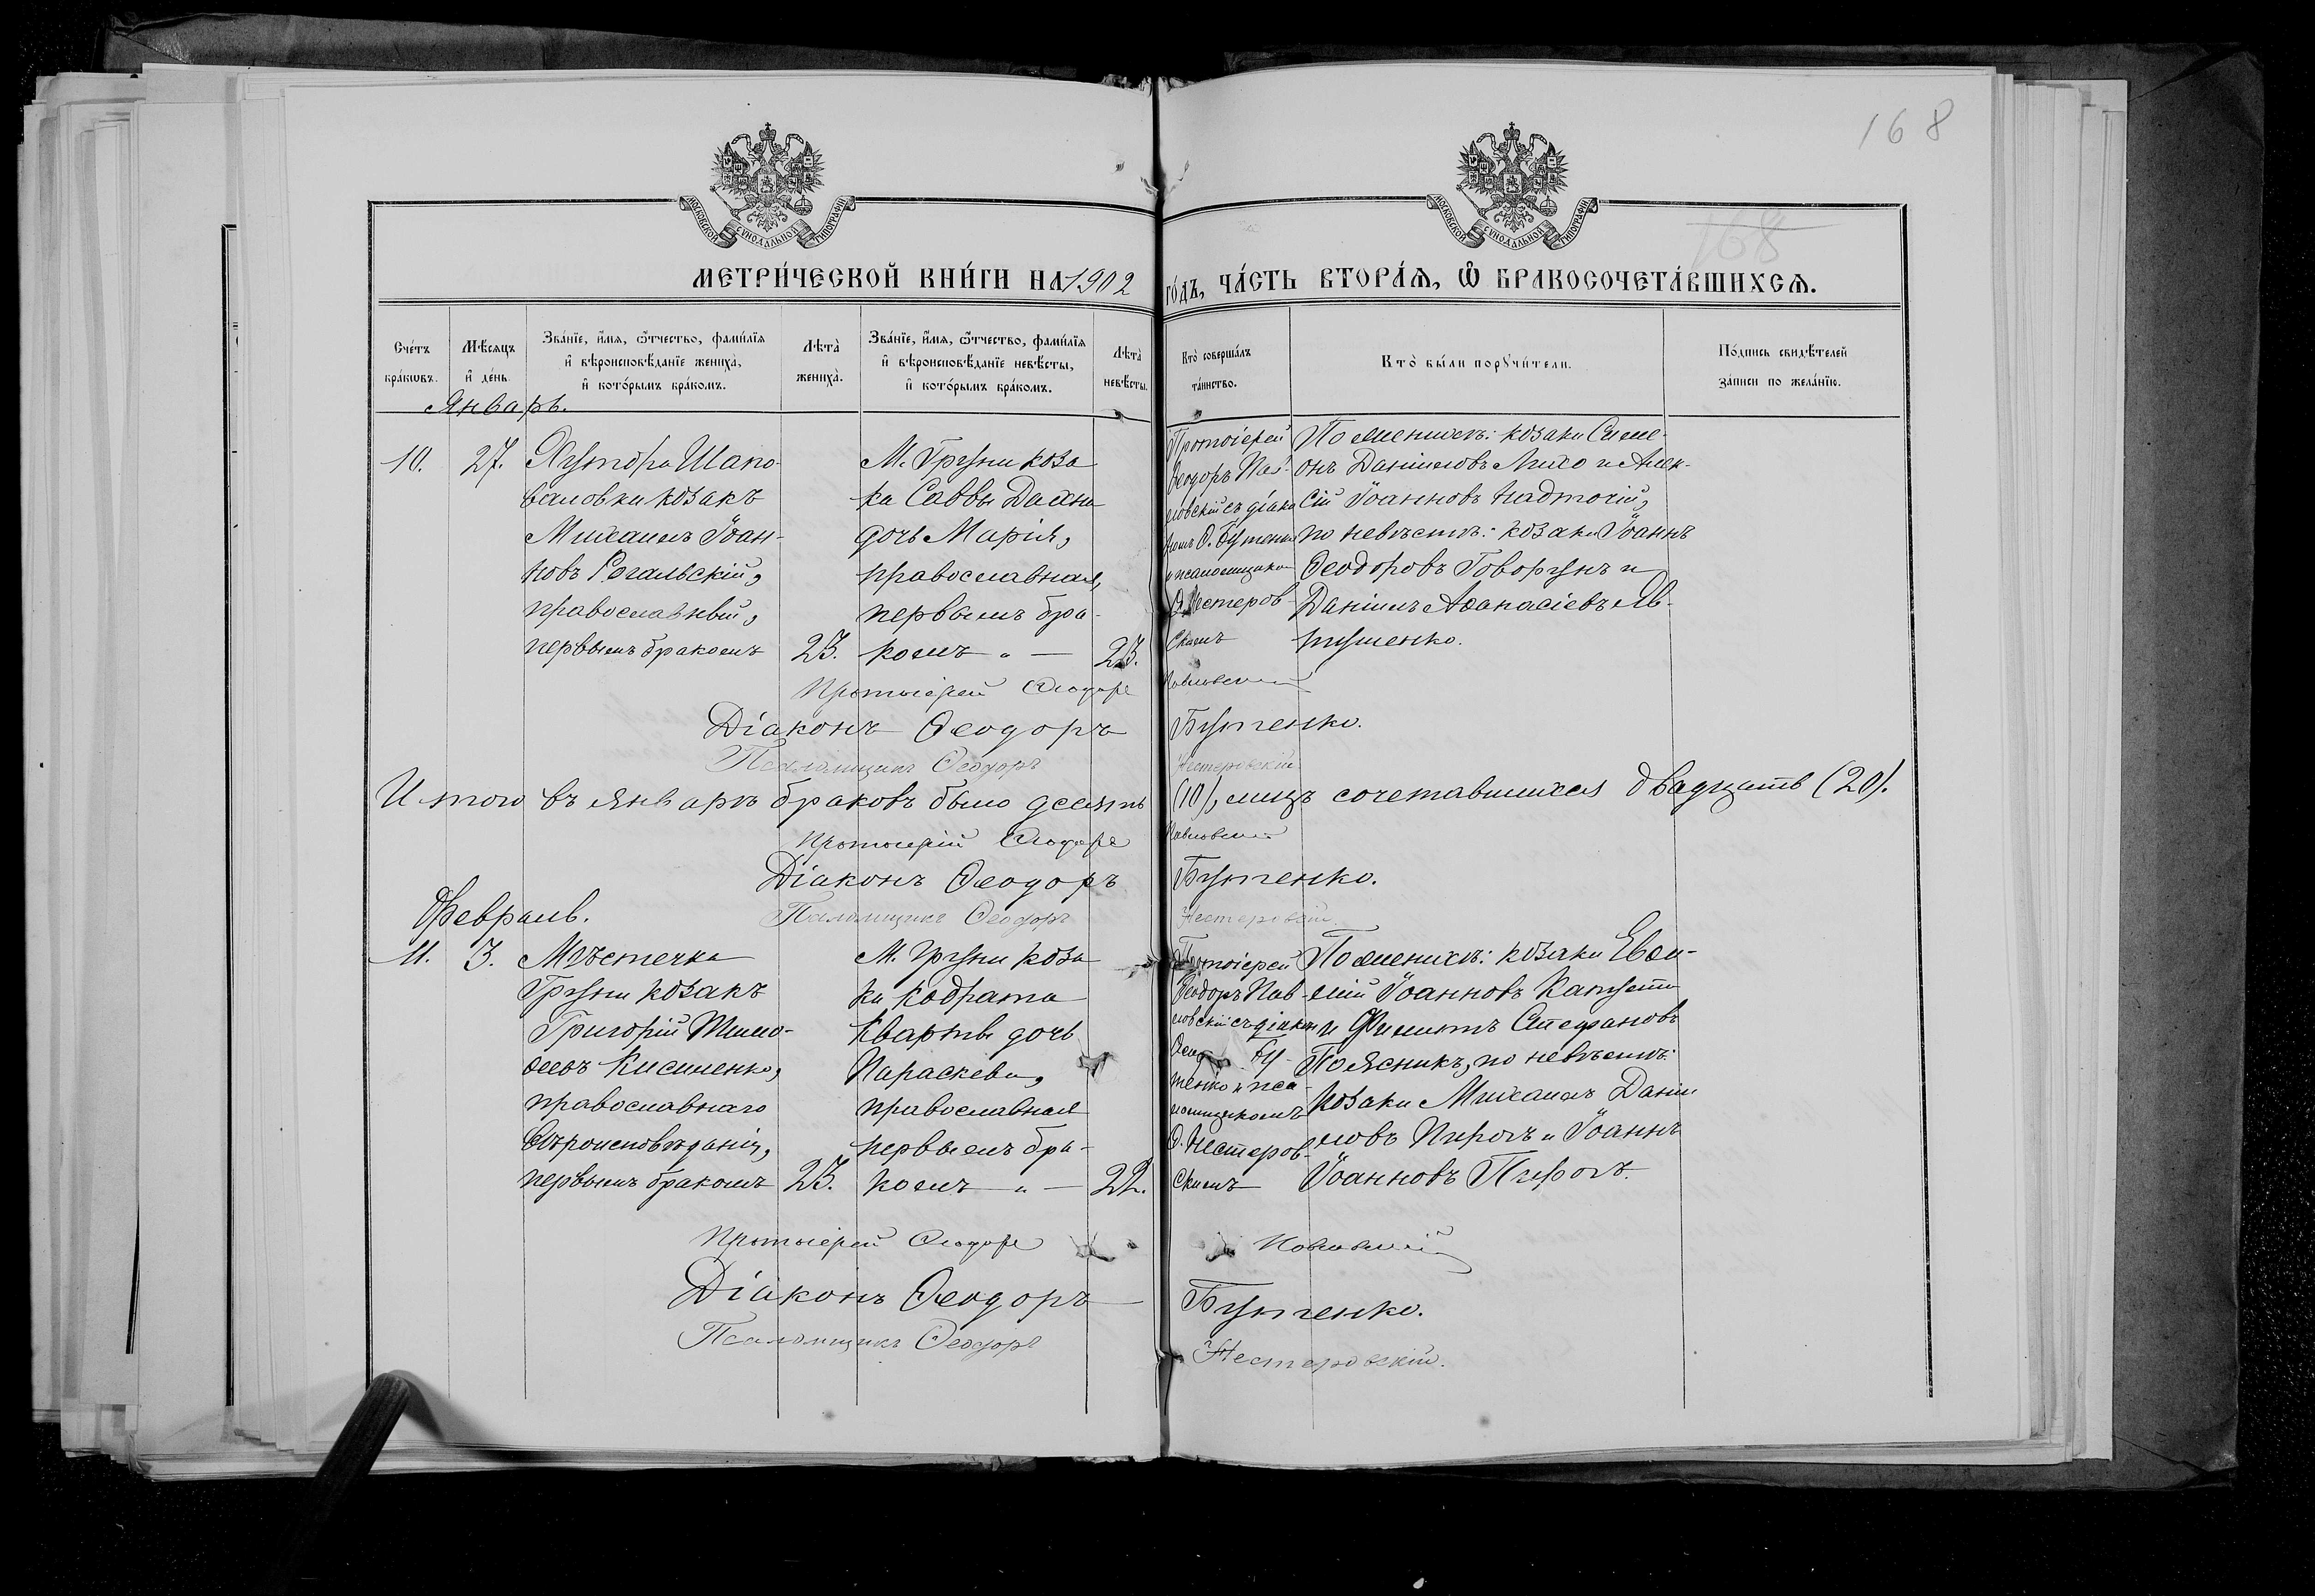 168
168
МОСКОВСКОЙ СѴНОДАЛЬНОЙ ТИПОГРАФІИ
МОСКОВСКОЙ СѴНОДАЛЬНОЙ ТИПОГРАФІИ
МЕТРИ́ЧЕСКОЙ КНИ́ГИ НА 1902 ГО́ДЪ, ЧА́СТЬ ВТОРА́Ѧ, Ѽ БРАКОСОЧЕТА́ВШИХСѦ.
Сче́тъ
бра́кѡвъ.
Мѣ́сяцъ
и҆ де́нь.
Зва́нїе, и҆́мя, ѻ҆́тчество, фами́лїя
и҆ вѣроисповѣ́данїе жениха̀,
и҆ кото́рымъ бра́комъ.
Лѣта̀
жениха̀.
Зва́нїе, и҆́мя, ѻ҆́тчество, фами́лїя
и҆ вѣроисповѣ́данїе невѣ́сты,
и҆ кото́рымъ бра́комъ.
Лѣта̀
невѣ́сты.
Кто̀ соверша́лъ
та́инство.
Кто̀ бы́ли порꙋчи́тели.
По́дпись свидѣ́телей
за́писи по жела́нїю.
Январь.
10.
27.
Хутора Шапо-
валовки козакъ
Михаилъ Іоан-
новъ Рогальскій,
православный,
первымъ бракомъ
23.
М. Груни коза
ка Саввы Дахна
дочь Марія,
православная,
первымъ бра-
комъ " —
23.
Протоіерей
Ѳеодоръ Пав-
ловскій съ діако
номъ Ѳ. Бутенко
и псаломщикомъ
Ѳ. Нестеров-
скимъ
По женихѣ: козаки Симе-
онъ Даніиловъ Лихо и Алек-
сій Іоанновъ Надточій,
по невѣстѣ: козаки Іоаннъ
Ѳеодоровъ Говорунъ и
Даніилъ Аѳанасіевъ Ев-
тушенко.
Протоіерей Ѳеодоръ Павловскій
Діаконъ Ѳеодоръ Бутенко.
Псаломщикъ Ѳеодоръ Нестеровскій
Итого въ январѣ браковъ было десять (10), лицъ сочетавшихся двадцать (20).
Протоіерей Ѳеодоръ Павловскій
Діаконъ Ѳеодоръ Бутенко.
Псаломщикъ Ѳеодоръ Нестеровскій.
Февраль.
11.
3.
Мѣстечка
Груни козакъ
Григорій Тимо-
ѳеевъ Кисиленко,
православнаго
вѣроисповѣданія,
первымъ бракомъ
23.
М. Груни коза
ка Кодрата
Кварты дочь
Параскева,
православная
первымъ бра-
комъ " —
22.
Протоіерей
Ѳеодоръ Пав-
ловскій съ діакон
Бу-
тенко и пса-
ломщикомъ
Ѳ. Нестеров-
скимъ
По женихѣ: козаки Евѳи-
мій Іоанновъ Капуста
и Филиппъ Стефановъ
Поясникъ, по невѣстѣ:
козаки Михаилъ Даніи
ловъ Пирогъ и Іоаннъ
Іоанновъ Пирогъ.
Протоіерей Ѳеодоръ Павловскій
Діаконъ Ѳеодоръ Бутенко.
Псаломщикъ Ѳеодоръ Нестеровскій.